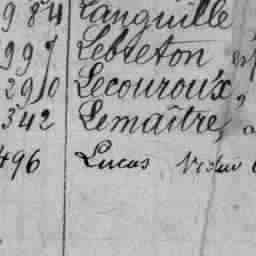 984 Languille
997 Lebreton
2910 Lecouroux
342 Lemaître
496 Lucas Victor